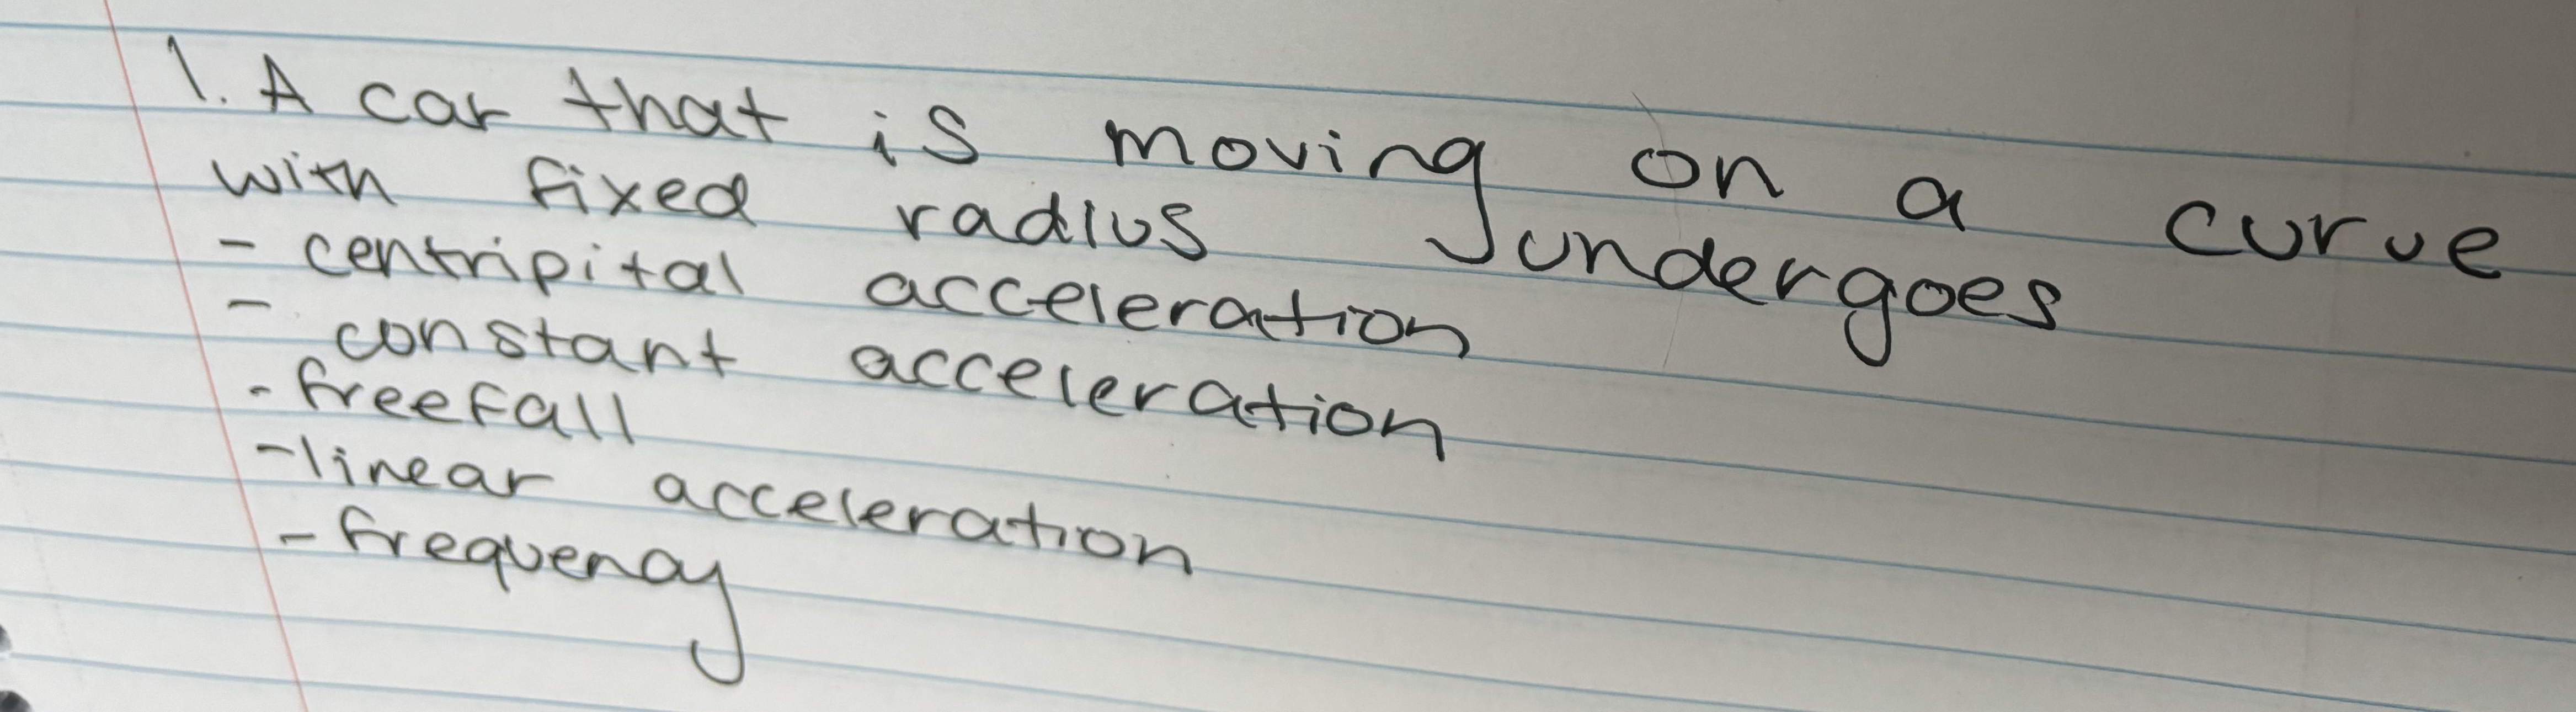 1. A car that is moving on a curve
with fixed radius undergoes
- centripital acceleration
- constant acceleration
- freefall
- linear acceleration
- frequency